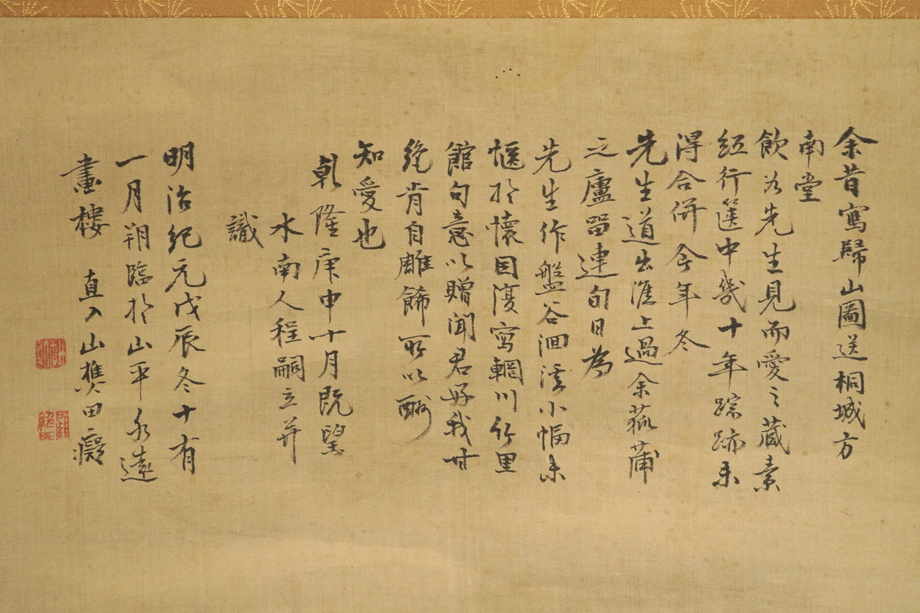 余昔寫歸山圖送桐城方
南堂
飲為先生見而愛々藏素
經行篋中幾十年踪跡未
得合併今年冬
先生道出淮上過余菰蒲
之廬留連旬日為
先生作盤谷洄溪小幅未
愜於懷因復寫輞川竹里
館句意以贈聞君好我甘
絶肯自雕飾所以酬
知愛也
乾隆庚申十月既望
水南人程嗣立并
識
明治紀元戊辰冬十有
一月朔臨於山平永遠
畫樓 直入山樵田癡